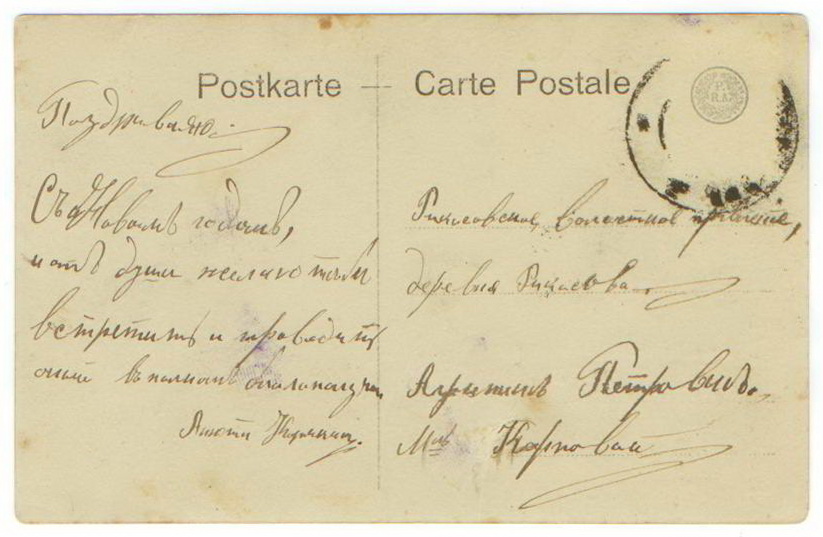 Postkarte — Carte Postale
Поздравляю
Съ Новымъ годомъ,
отъ души желаю тебе
встретить и проводить
оный въ полномъ благополучии
Рикасовское, волостное правление,
деревня Рикасова.
Петровнѣ,
Карповой